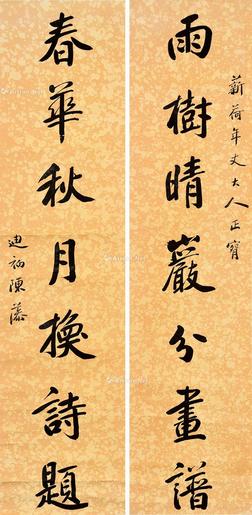 薪荷年丈大人正寶
雨樹晴巖分畫譜
春華秋月換詩題
迪初陳藻